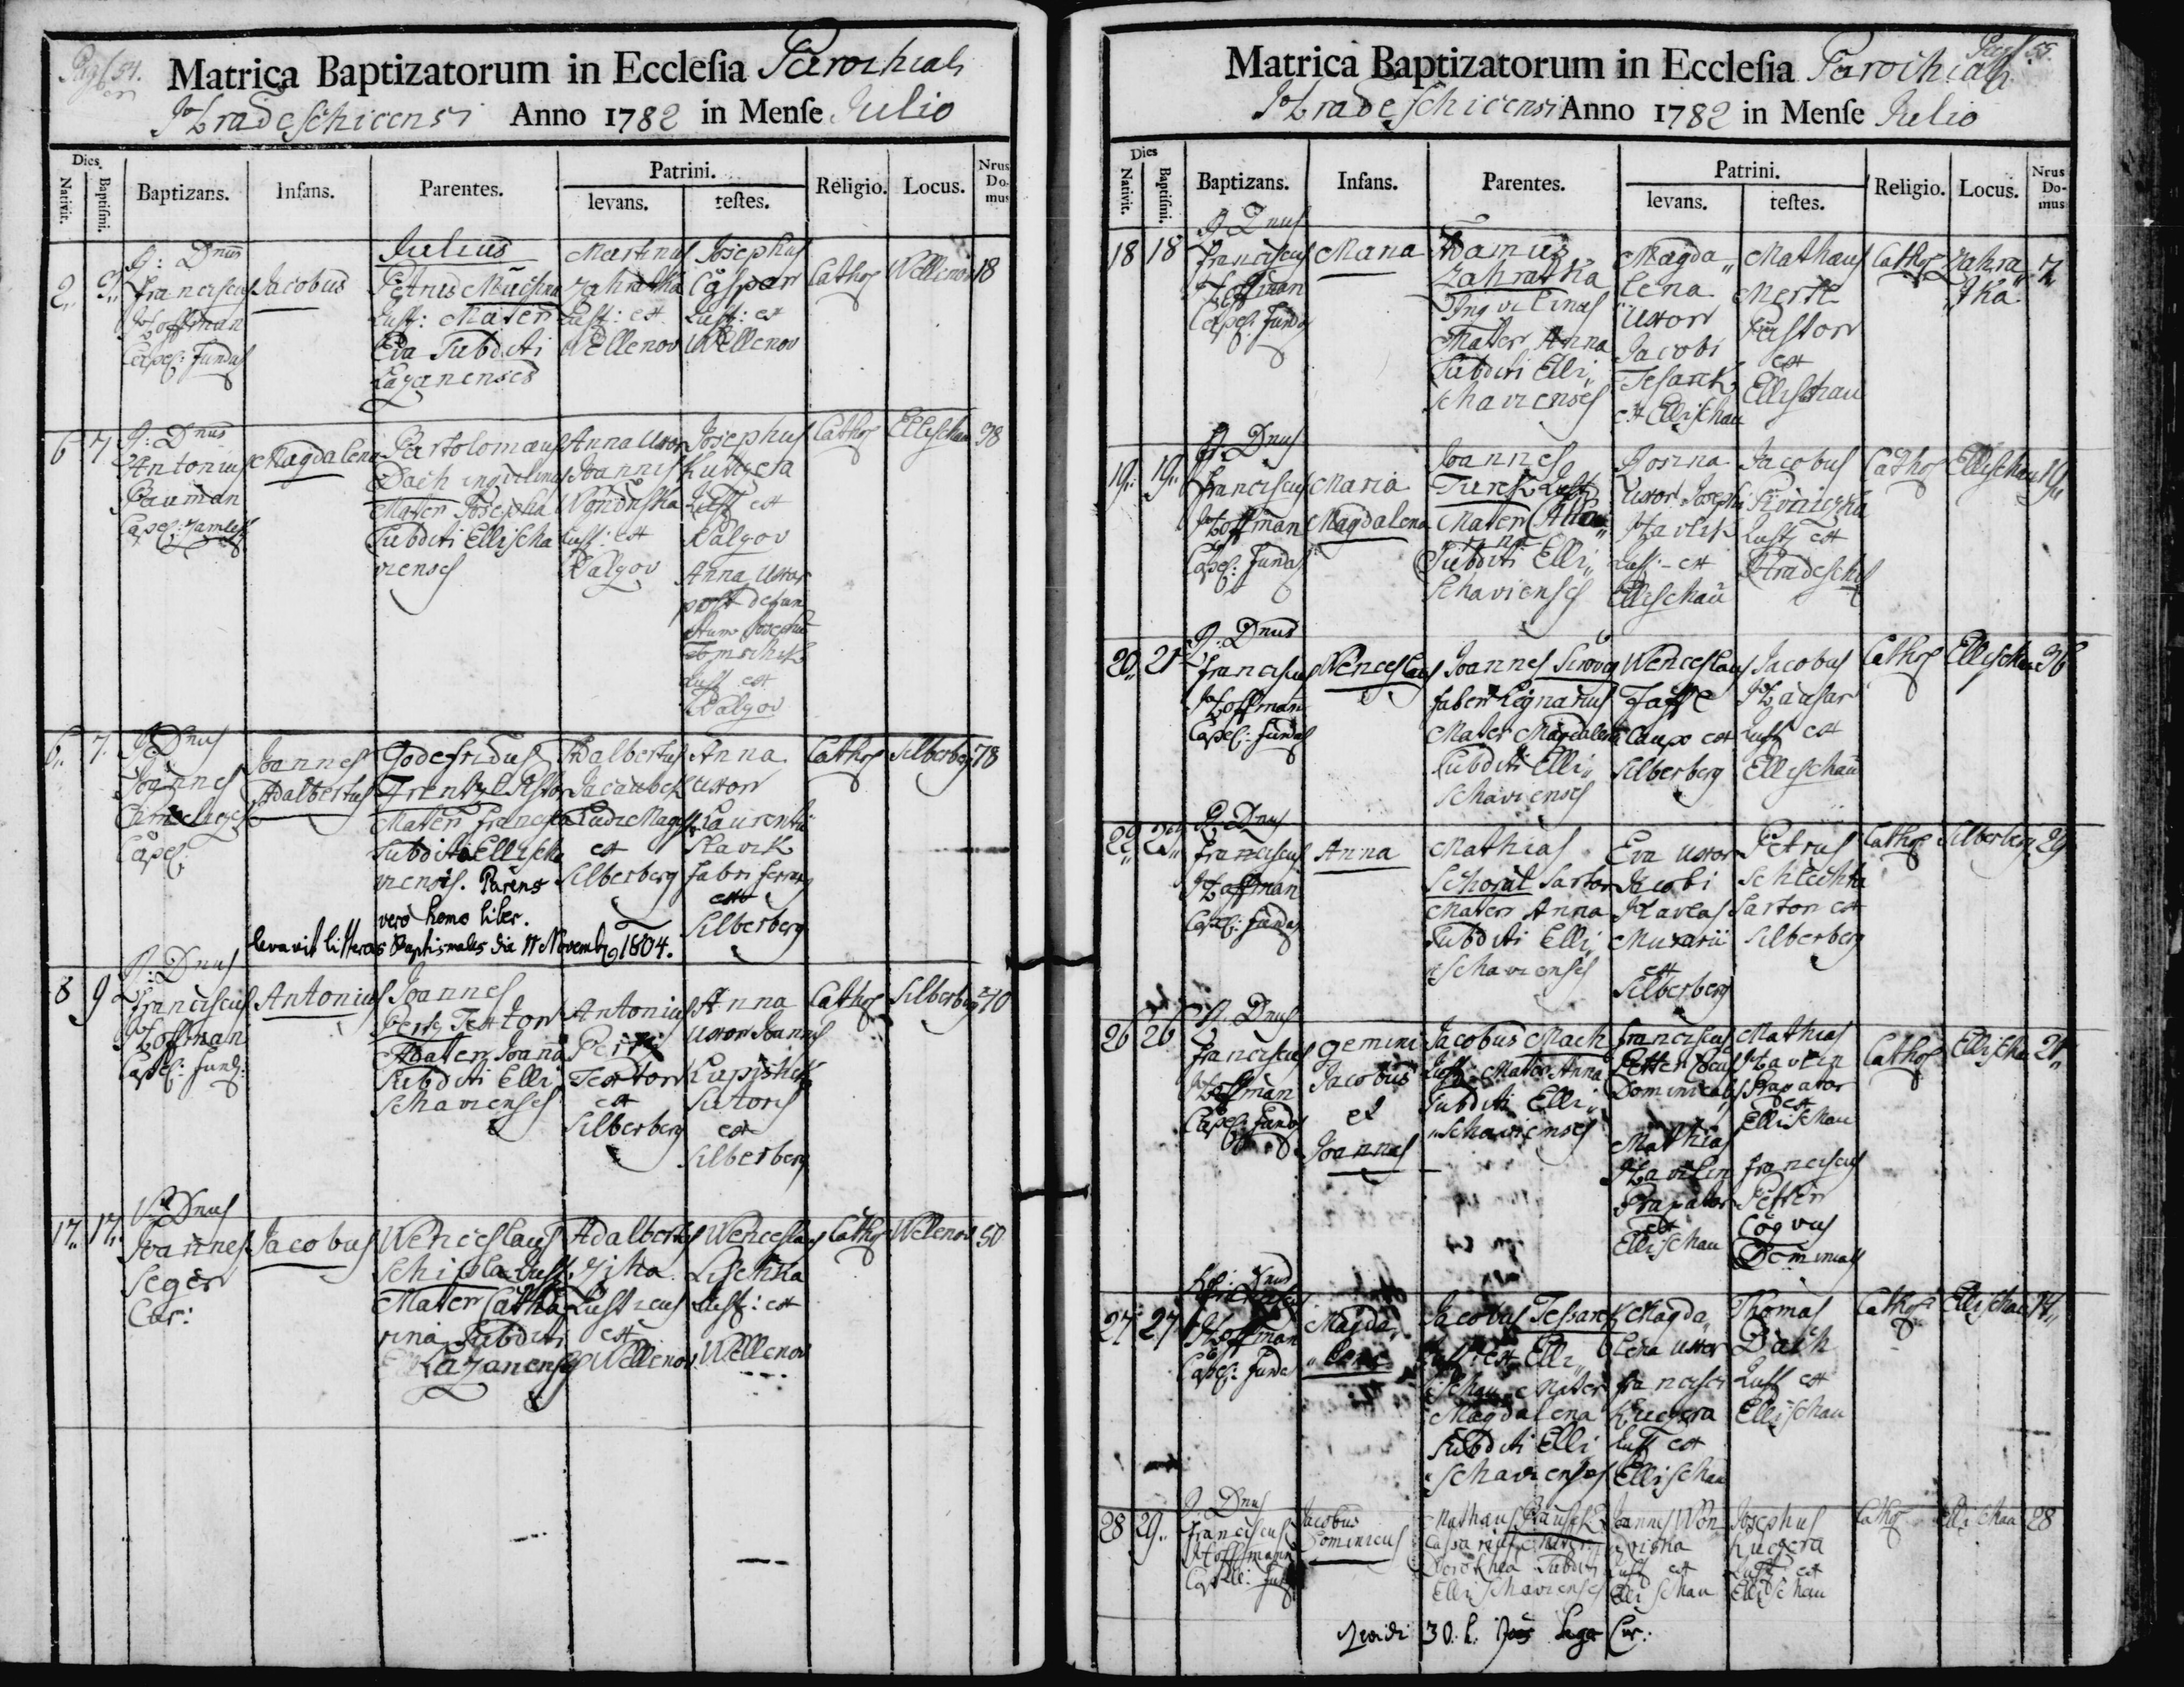 Pag. 54.
Matrica Baptizatorum in Ecclesia Parochiali
Hradeschicensi Anno 1782 in Mense Julio
Dies
Nativit.
Baptismi.
Baptizans.
Infans.
Parentes.
Patrini.
levans.
testes.
Religio.
Locus.
Nrus Do- mus
Julius
2 3
R: Dnus
Franciscus
Hoffman
Capel: Fundat
Jacobus
Petrus
Rust: Mater
Eva Subditi
Lazanenses
Martinus
Zahratka
Rust: ex
Wellenov
Josephus
Caspar
Rust: ex
Wellenov
Cathol
Wellenov
18
6 7
R: Dnus
Antonius
Bauman
Capel:
Magdalena
Bartolomæus
Dach inquilinus
Mater Josepha
Subditi Ellischa
vienses
Anna Uxor
Joannis
Rust: ex
Kalzov
Josephus
Kuczera
Rust ex
Kalzov
Anna Uxor
post defun
Rust ex
Kalzov
Cathol
Ellischau
38
6 7
R Dnus
Joannes
Capel:
Joannes
Adalbertus
Godefridus
Frentzl
Mater Francisca
Subdita Ellischa
viensis. Parens
vero homo liber.
levavit litteras Baptismales die 11 Novemb 1804.
Adalbertus
Jacaubek
Ludi Mag
ex
Silberberg
Anna
uxor
Laurentii
Slavik
fabri ferrarii
ex
Silberberg
Cathol
Silberberg
78
8 9
R: Dnus
Franciscus
Hoffman
Capel: Fund:
Antonius
Joannes
Textor
Mater Joana
Subditi Elli
schavienses
Antonius
Textor
ex
Silberberg
Anna
uxor Joannis
Sutoris
ex
Silberberg
Cathol
Silberberg
40
17 17
R Dnus
Joannes
Seger
Cur:
Jacobus
Wenceslaus
Schisla Rust:
Mater Catha
rina Subditi
Lazanenses
Adalbertus
Zika
Rusticus
ex
Wellenov
Wenceslaus
Lischka
Rust: ex
Wellenov
Cathol
Wellenov
50
Pag. 55.
Matrica Baptizatorum in Ecclesia Parochiali
Hradeschicensi Anno 1782 in Mense Julio
Dies
Nativit.
Baptismi.
Baptizans.
Infans.
Parentes.
Patrini.
levans.
testes.
Religio.
Locus.
Nrus Do- mus
18 18
R Dnus
Franciscus
Hoffman
Capel: Fundat
Maria
Adamus
Zahratka
Inquilinus
Mater Anna
Subditi Elli,,
schavienses
Magda,,
lena
uxor
Jacobi
Tesarek
ex Ellischau
Mathæus
ex
Ellischau
Cathol
Zahra,,
tka
7
19 19
R: Dnus
Franciscus
Hoffman
Capel: Fundat
Maria
Magdalena
Joannes
Turek Rust
Mater Anna
Subditi Elli,,
schavienses
Rosina
Uxor Josephi
Havlik
Rust: ex
Ellischau
Jacobus
Rust ex
Cathol
Ellischau
19
20 21
R: Dnus
Franciscus
Hoffman
Capel: Fundat
Wenceslaus
Joannes
faber lignarius
Mater Magdalena
Subditi Elli,,
schavienses
Wenceslaus
Caupo ex
Silberberg
Jacobus
Hausar
Rust ex
Ellischau
Cathol
Ellischau
36
22 23
R: Dnus
Franciscus
Hoffman
Capel: Fundat
Anna
Mathias
Sartor
Mater Anna
Subditi Elli,,
schavienses
Eva uxor
Jacobi
Murarii
ex
Silberberg
Petrus
Schlechta
Sartor ex
Silberberg
Cathol
Silberberg
29
26 26
R. Dnus
Franciscus
Hoffman
Capel: Fundat
gemini
Jacobus
et
Joannes
Jacobus Mach
Rust: Mater Anna
Subditi Elli,,
schavienses
Franciscus
Dominicalis
Mathias
ex
Ellischau
Mathias
ex
Ellischau
Franciscus
Dominicalis
Cathol
Ellischau
21
27 27
Hoffman
Capel: Fundat
Magda,,
lena
Jacobus Tesarek
Rust ex Elli,,
schau Mater
Magdalena
Subditi Elli
schavienses
Magda,,
lena uxor
Francisci
Kuczera
Rust ex
Ellischau
Thomas
Dach
Rust ex
Ellischau
Cathol
Ellischau
14
28 29
R Dnus
Franciscus
Hoffmann
Jacobus
Dominicus
Mathæus
Mater
Dorothea Subditi
Ellischavienses
Joannes
Rust ex
Ellischau
Josephus
Kuczera
Rust ex
Ellischau
Cathol
Ellischau
28
30. Cur: